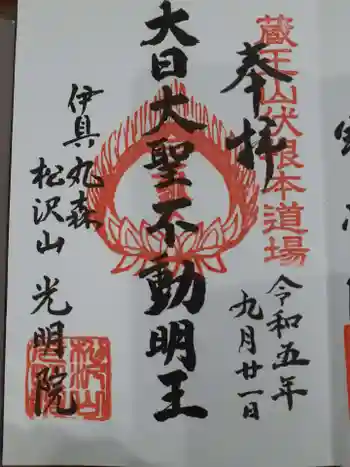 奉拝
蔵王山伏根本道場
令和五年
九月廿一日
大日大聖不動明王
伊具丸森
松沢山 光明院